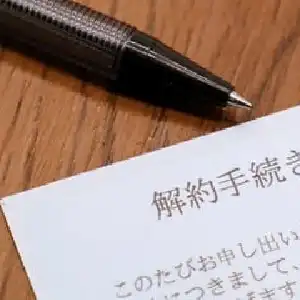 解約手続き
このたびお申し出い
につきまして、
ます